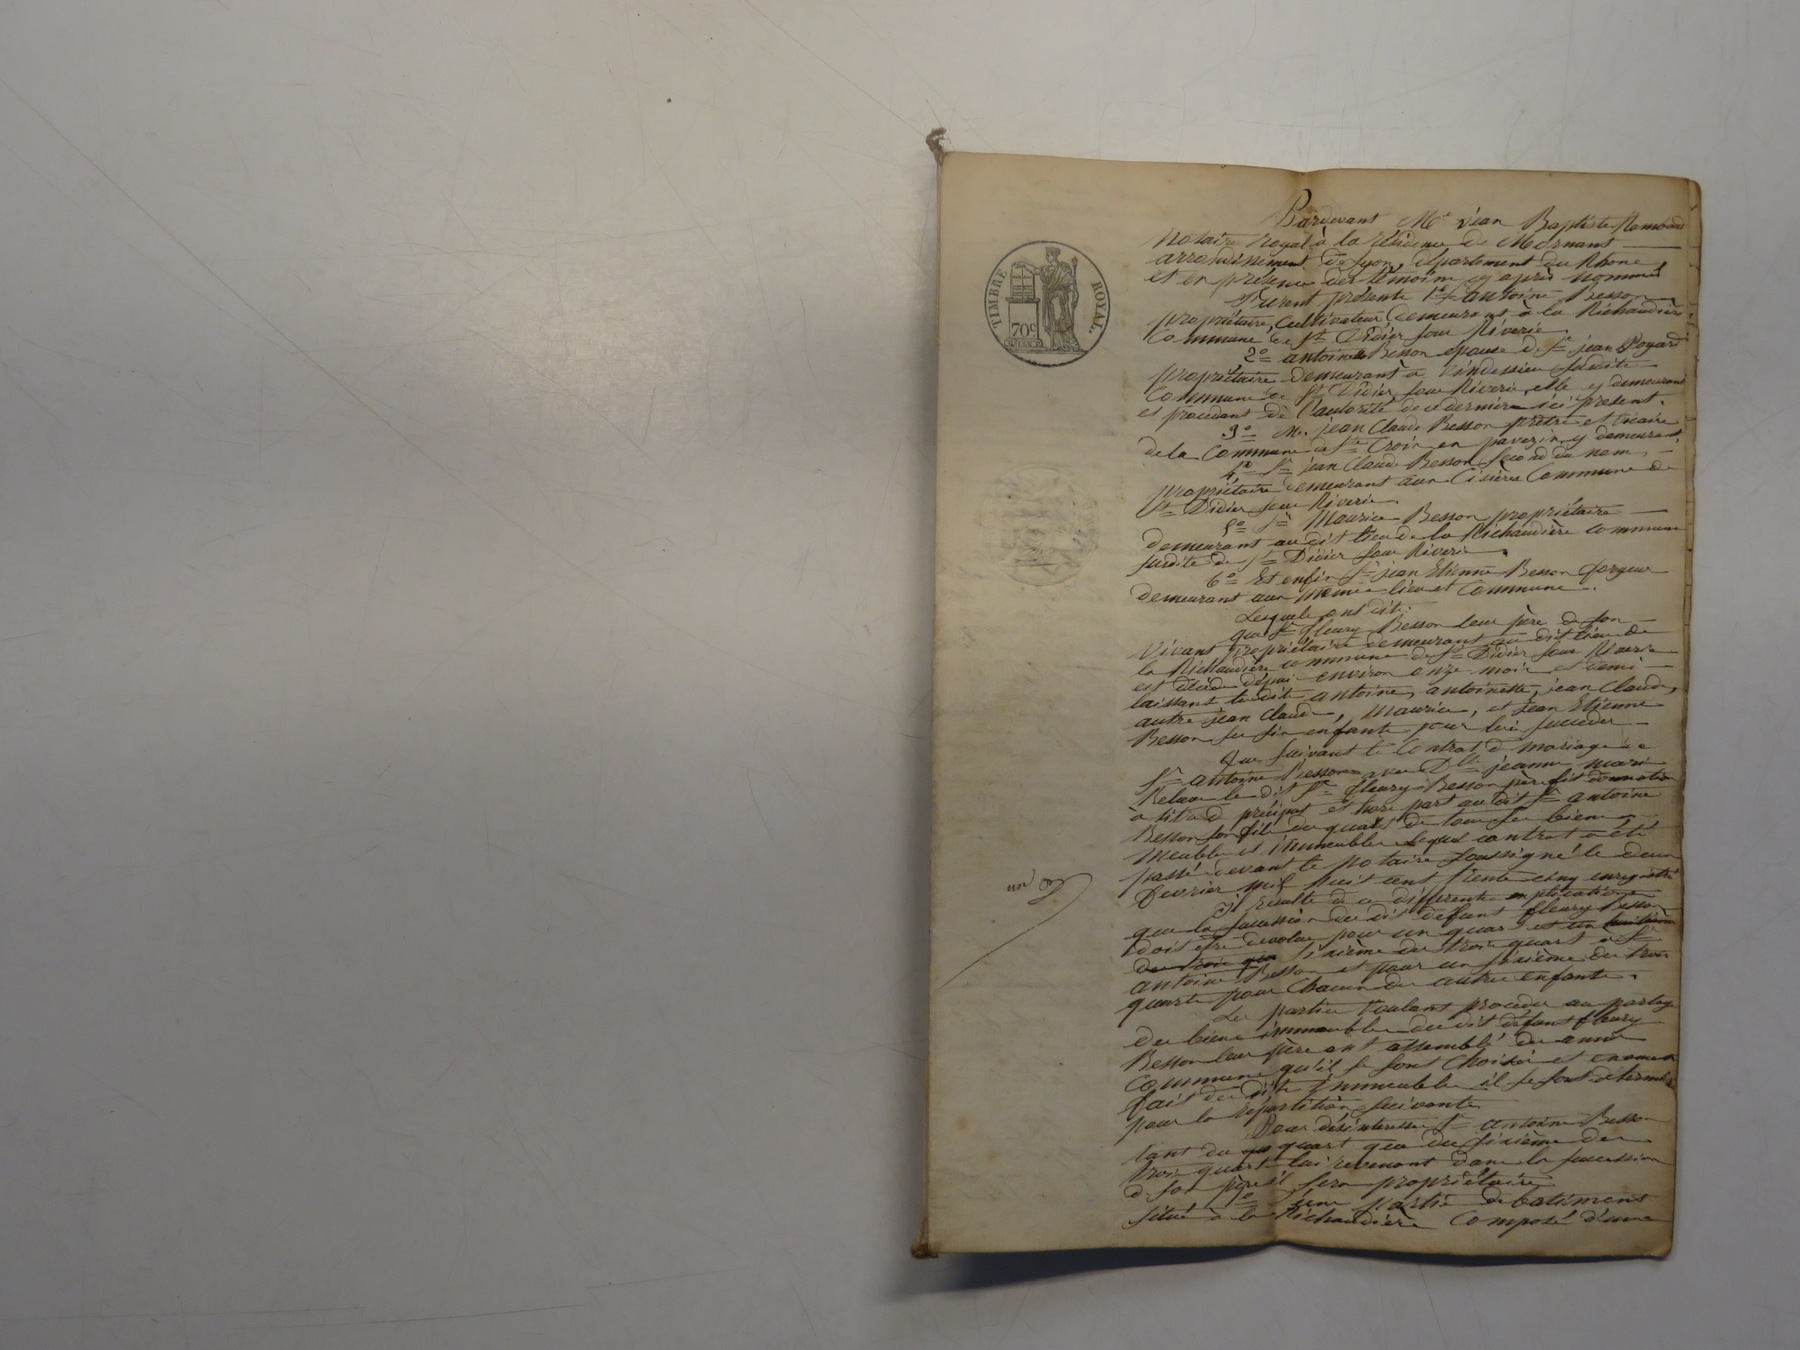 TIMBRE ROYAL.
70c
Pardevant Me jean Baptiste
Notaire royal à la résidence de Mornant
arrondissement de Lyon, département du Rhône
et en présence des témoins cy après nommés
Furent présents 1° Sr antoine Besson
propriétaire, Cultivateur demeurant à la Richaudière
Commune de St Didier sous Riverie.
2° antoinette Besson épouse de Sr jean
propriétaire demeurant à susdite
Commune de St Didier sous Riverie, elle y demeurant
et procédant de l'autorité de ce dernier ici présent.
3° Mr jean Claude Besson prêtre et vicaire
de la Commune de Ste Croix en pavezin y demeurant
4° Sr jean Claude Besson second du nom,
propriétaire demeurant aux Commune de
St Didier sous Riverie.
5° Sr Maurice Besson propriétaire
demeurant au dit lieu de la Richaudière commune
susdite de St Didier sous Riverie.
6° Et enfin Sr jean Etienne Besson forgeur
demeurant aux mêmes lieu et Commune.
Lesquels ont dit:
que Sr fleury Besson leur père de son
vivant propriétaire demeurant au dit lieu de
la Richaudière commune de St Didier sous Riverie
est décédé depuis environ onze mois et demi
laissant les dits antoine, antoinette, jean Claude,
autre jean Claude, Maurice, et jean Etienne
Besson ses six enfants pour lui succéder
Que suivant le Contrat de mariage de
Sr antoine Besson avec Dlle jeanne marie
le dit Sr fleury Besson père fit donnation
à titre de préciput et hors part au dit Sr antoine
Besson son fils du quart de tous ses biens
Meubles et immeubles lequel contrat a été
passé devant le notaire soussigné le deux
fevrier mil huit cent trente cinq enregistré
Il résulte de ces différentes explications
que la succession du dit défunt fleury Besson
doit être dévolue pour un quart et un
sixième des trois quart à Sr
antoine Besson et pour un sixième des trois
quarts pour Chacun des autres enfants.
Les parties voulant procéder au partage
des biens immeubles du dit défunt fleury
Besson leur père ont assemblé des amis
Communs qu'ils se sont Choisis et examen
fait des dits immeubles ils se sont déterminés
pour la répartition suivante
Pour désintéresser Sr antoine Besson
tant du quart que du sixième des
trois quarts lui revenant dans la succession
de son père il sera propriétaire
1° d'une partie de batiments
situé à la Richaudière Composé d'une